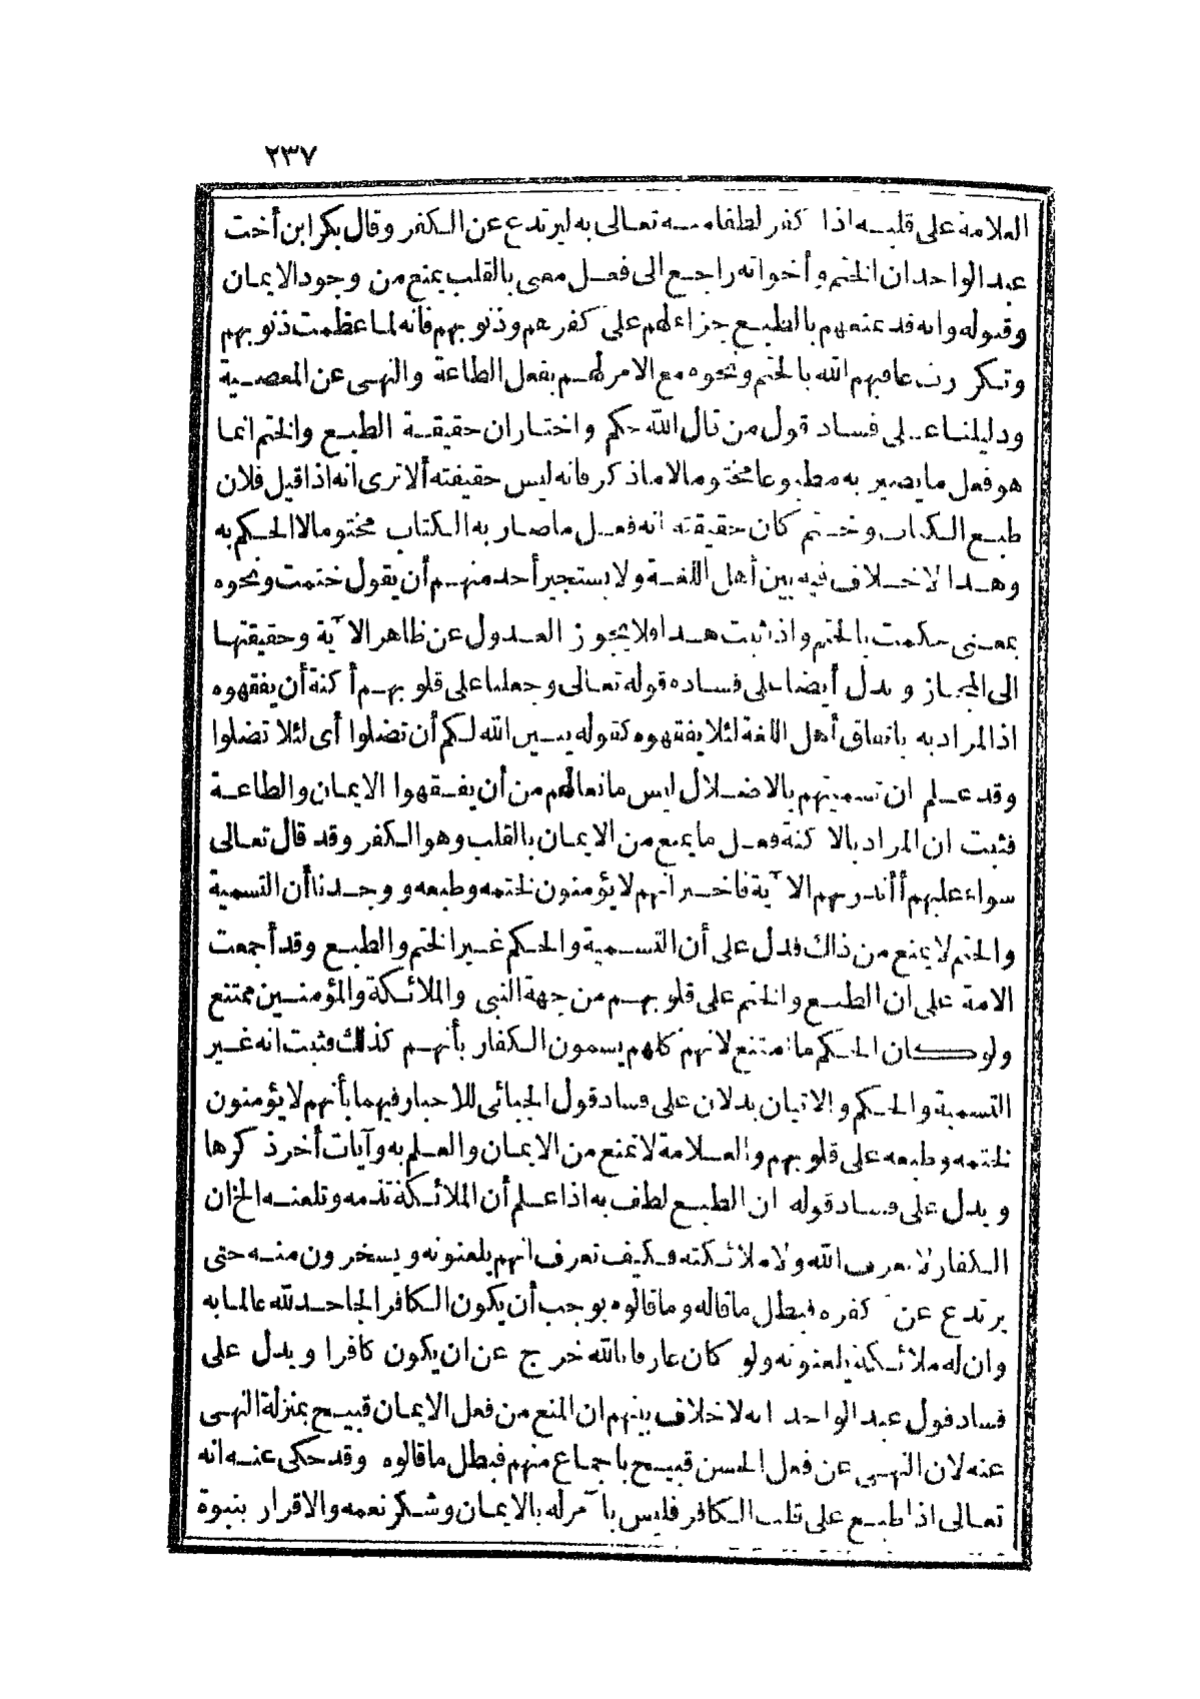 ٢٣٧
العلامة على قلبه اذا كفر لطفا منه تعالى به ليرتدع عن الكفر وقال بكر ابن أخت
عبد الواحد ان الختم وأخواته راجع الى فعل معنى بالقلب يمنع من وجود الايمان
وقبوله وانه قد عنعهم بالطبع جزاء لهم على كفرهم وذنوبهم فأنه لما عظمت ذنوبهم
وتكررت عاقبهم الله بالختم ونحوه مع الامر لهم بفعل الطاعة والنهى عن المعصية
ودليلنا على فساد قول من قال الله حكم واختار ان حقيقة الطبع والختم انما
هو فعل ما يصير به مطبوعا مختوما لا ما ذكر فانه ليس حقيقته ألا ترى انه اذا قيل فلان
طبع الكتاب وختم كان حقيقته انه فعل ما صار به الكتاب مختوما لا الحكم به
وهذا لا خلاف فيه بين أهل اللغة ولا يستجير أحد منهم أن يقول ختمت ونحوه
بمعنى حكمت بالختم واذ ثبت هذا فلا يجوز العدول عن ظاهر الآية وحقيقتها
الى المجاز ويدل أيضا على فساده قوله تعالى وجعلنا على قلوبهم أكنة أن يفقهوه
اذ المراد به باتفاق أهل اللغة لئلا يفقهوه كقوله يبين الله لكم أن تضلوا أى لئلا تضلوا
وقد علم ان تسميتهم بالاضلال ليس مانعا لهم من أن يفقهوا الايمان والطاعة
فثبت ان المراد بالاكنة فعل ما يمنع من الايمان بالقلب وهو الكفر وقد قال تعالى
سواء عليهم أأنذرتهم الآية فاخبر انهم لا يؤمنون لختمه وطبعه ووجدنا أن التسمية
والختم لا يمنع من ذلك فدل على أن التسمية والحكم غير الختم والطبع وقد أجمعت
الامة على ان الطبع والختم على قلوبهم من جهة النبى والملائكة والمؤمنين ممتنع
ولو كان الحكم ما امتنع لانهم كلهم يسمون الكفار بأنهم كذلك فثبت انه غير
التسمية والحكم والايتان يدلان على فساد قول الجبائى للاخبار فيهما بأنهم لا يؤمنون
لختمه وطبعه على قلوبهم والعلامة لا تمنع من الايمان والعلم به وآيات أخر ذكرها
ويدل على فساد قوله ان الطبع لطف به اذا علم أن الملائكة تذمه وتلعنه الخ ان
الكفار لا يعرف الله ولا ملائكته فكيف تعرف انهم يلعنونه ويسخرون منه حتى
يرتدع عن كفره فبطل ما قاله وما قالوه يوجب أن يكون الكافر الجاحد لله عالما به
وان له ملائكة يلعنونه ولو كان عارفا بالله خرج عن ان يكون كافرا ويدل على
فساد قول عبد الواحد انه لا خلاف بينهم ان المنع من فعل الايمان قبيح بمنزلة النهى
عنه لان النهى عن فعل الحسن قبيح باجماع منهم فبطل ما قالوه وقد حكى عنه انه
تعالى اذا طبع على قلب الكافر فليس بآمر له بالايمان وشكر نعمه والاقرار بنبوة